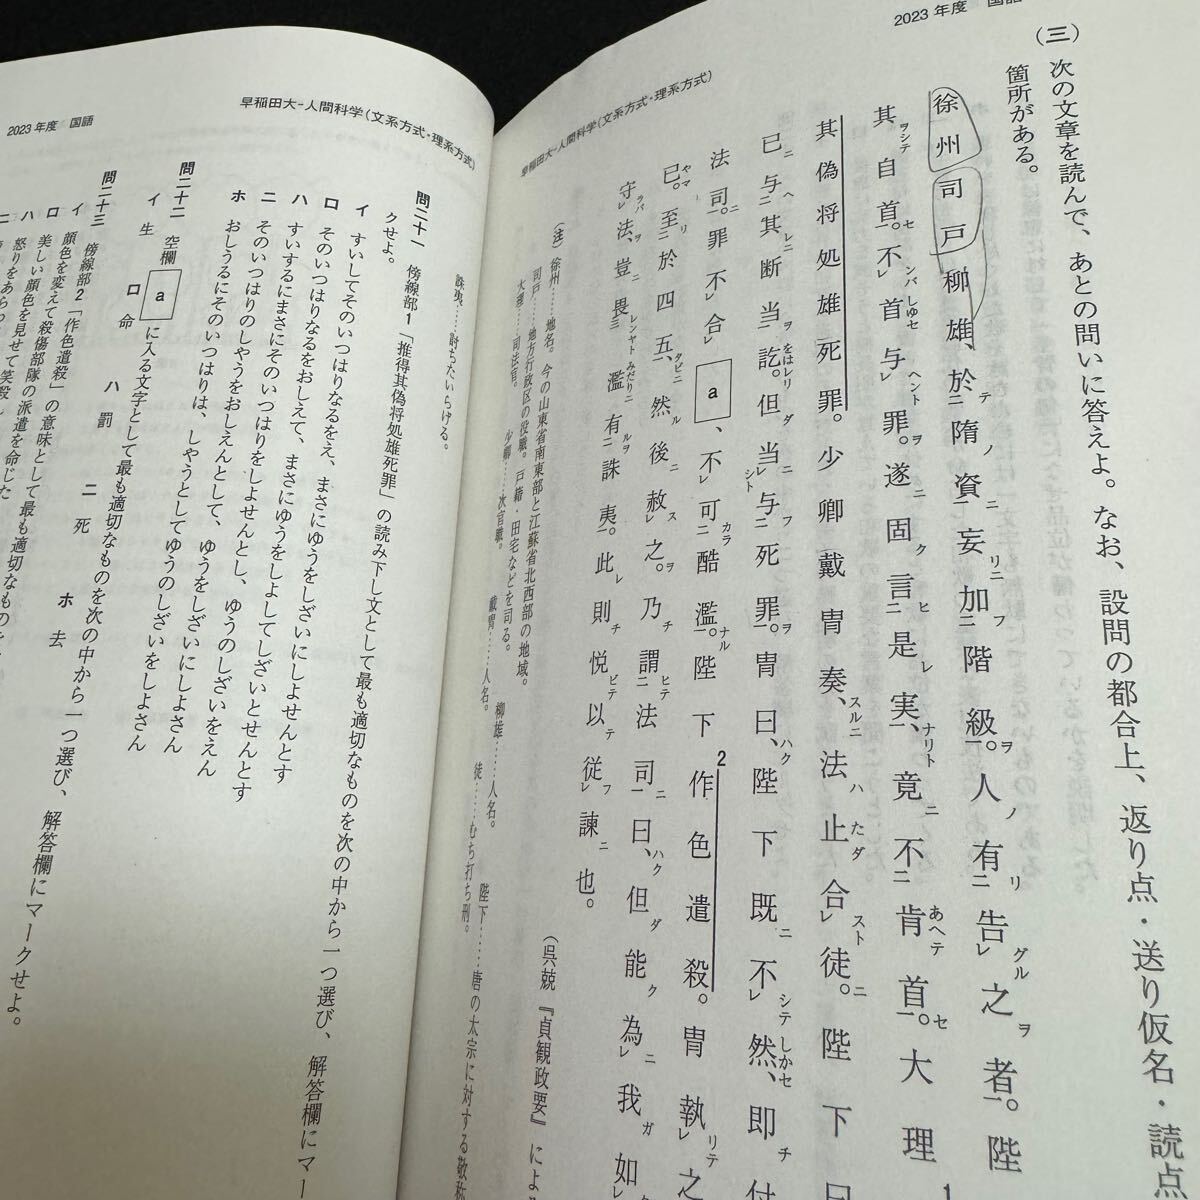 2023年度　国語
早稲田大-人間科学(文系方式・理系方式)
(三)　次の文章を読んで、あとの問いに答えよ。なお、設問の都合上、返り点・送り仮名・読点
箇所がある。
徐州司戸柳雄、於隋資妄加階級。人有告之者。陛
其自首。不首与罪。遂固言是実、竟不肯首。大理
其偽将処雄死罪。少卿戴冑奏、法止合徒。陛下曰
已与其断当訖。但当与死罪。冑曰、陛下既不然、即付
法司。罪不合a、不可酷濫。陛下作色遣殺。冑執之
已。至於四五、然後赦之。乃謂法司曰、但能為我如
守法、豈畏濫有誅夷。此則悦以従諫也。
(呉兢『貞観政要』によ
(注)　徐州……地名。今の山東省南東部と江蘇省北西部の地域。
司戸……地方行政区の役職。戸籍・田宅などを司る。　柳雄……人名。　徒……むち打ち刑。　陛下……唐の太宗に対する敬称
大理……司法官。　少卿……次官職。　戴冑……人名。
誅夷……討ちたいらげる。
早稲田大-人間科学(文系方式・理系方式)
2023年度　国語
問二十一　傍線部1「推得其偽将処雄死罪」の読み下し文として最も適切なものを次の中から一つ選び、解答欄にマー
クせよ。
イ　すいしてそのいつはりなるをえ、まさにゆうをしざいにしよせんとす
ロ　そのいつはりなるをおしえて、まさにゆうをしよしてしざいとせんとす
ハ　すいするにまさにそのいつはりをしよせんとし、ゆうのしざいをえん
ニ　そのいつはりのしやうをおしえんとして、ゆうをしざいにしよさん
ホ　おしうるにそのいつはりは、しやうとしてゆうのしざいをしよさん
問二十二　空欄aに入る文字として最も適切なものを次の中から一つ選び、解答欄にマークせよ。
イ　生　ロ　命　ハ　罰　ニ　死　ホ　去
問二十三　傍線部2「作色遣殺」の意味として最も適切なものを
イ　顔色を変えて殺傷部隊の派遣を命じた
ロ　美しい顔色を見せて笑殺し
ハ　怒りをあらわ
ニ